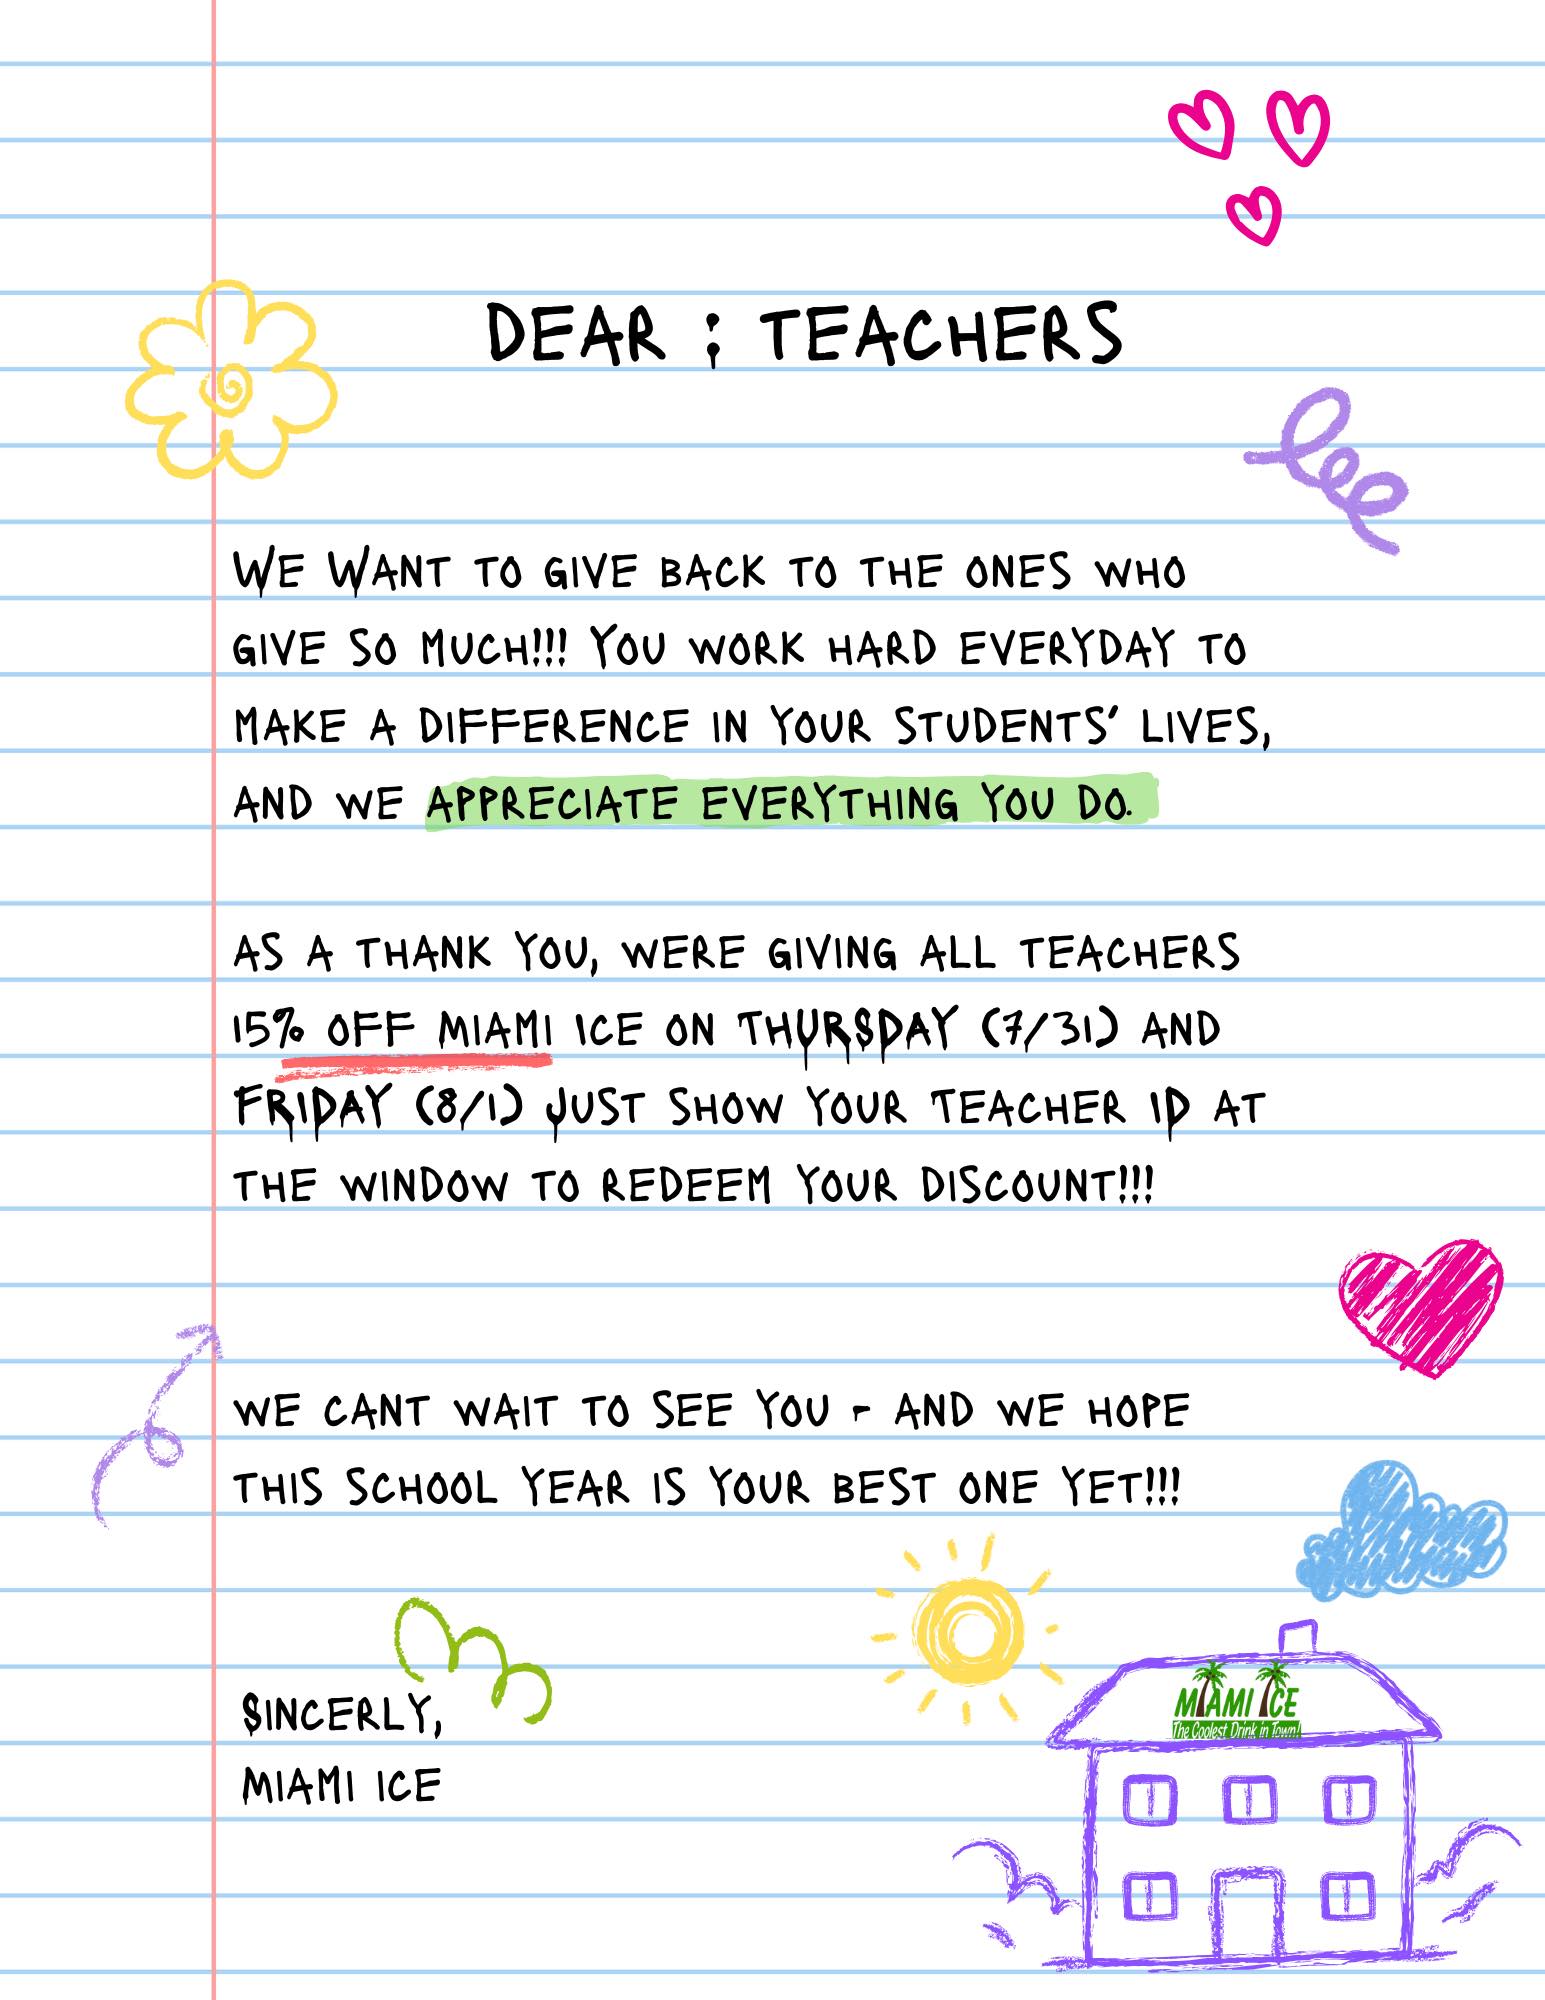 DEAR : TEACHERS
WE WANT TO GIVE BACK TO THE ONES WHO
GIVE SO MUCH!!! YOU WORK HARD EVERYDAY TO
MAKE A DIFFERENCE IN YOUR STUDENTS' LIVES,
AND WE APPRECIATE EVERYTHING YOU DO.
AS A THANK YOU, WERE GIVING ALL TEACHERS
15% OFF MIAMI ICE ON THURSDAY (7/31) AND
FRIDAY (8/1) JUST SHOW YOUR TEACHER ID AT
THE WINDOW TO REDEEM YOUR DISCOUNT!!!
WE CANT WAIT TO SEE YOU - AND WE HOPE
THIS SCHOOL YEAR IS YOUR BEST ONE YET!!!
SINCERLY,
MIAMI ICE
MIAMI ICE
The Coolest Drink in Town!